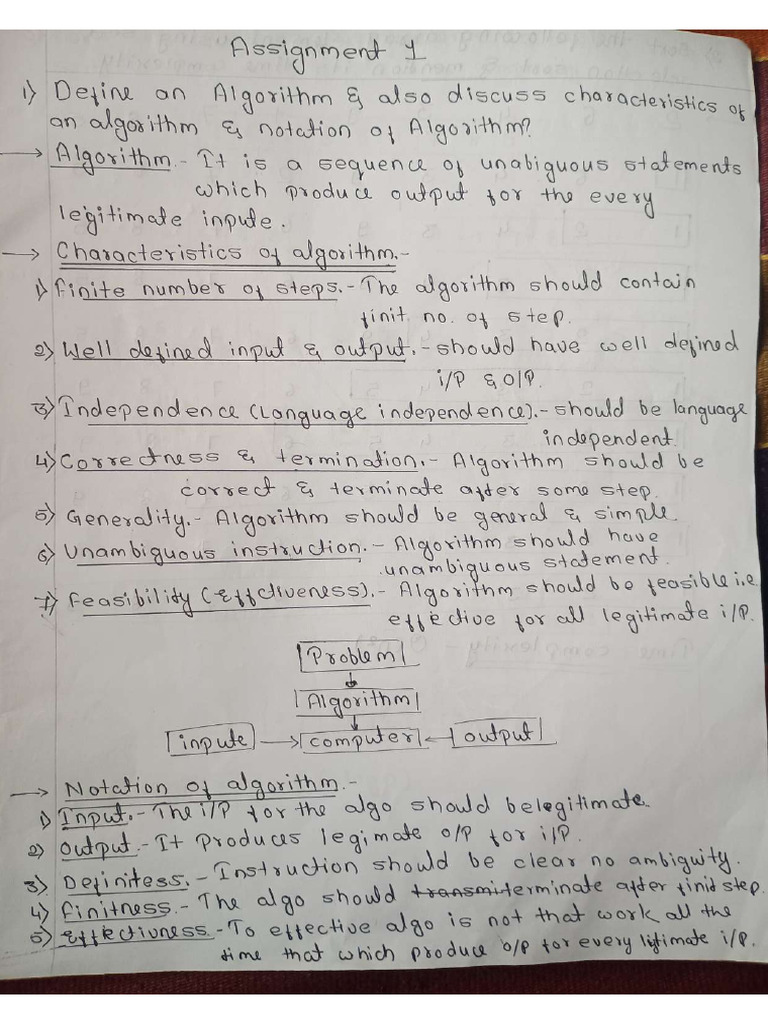 Assignment 1
1) Define an Algorithm & also discuss characteristics of
an algorithm & notation of Algorithm?
→ Algorithm.- It is a sequence of unabiguous statements
which produce output for the every
legitimate inpute.
→ Characteristics of algorithm.-
1) finite number of steps.- The algorithm should contain
finit no. of step.
2) Well defined input & output.- should have well defined
i/P & O/P.
3) Independence (Language independence).- should be language
independent.
4) Correctness & termination.- Algorithm should be
correct & terminate after some step.
5) Generality.- Algorithm should be general & simple.
6) Unambiguous instruction.- Algorithm should have
unambiguous statement.
7) Feasibility (Effctiveness).- Algorithm should be feasible i.e
effective for all legitimate i/P.
Problem
Algorithm
inpute → computer ← output
→ Notation of algorithm.-
1) Input.- The i/P for the algo should be legitimate.
2) Output.- It produces legimate o/P for i/P.
3) Definitess.- Instruction should be clear no ambiguity.
4) finitness.- The algo should transmit terminate after finit step.
5) Effectivness - To effective algo is not that work all the
time that which produce o/p for every litimate i/P.